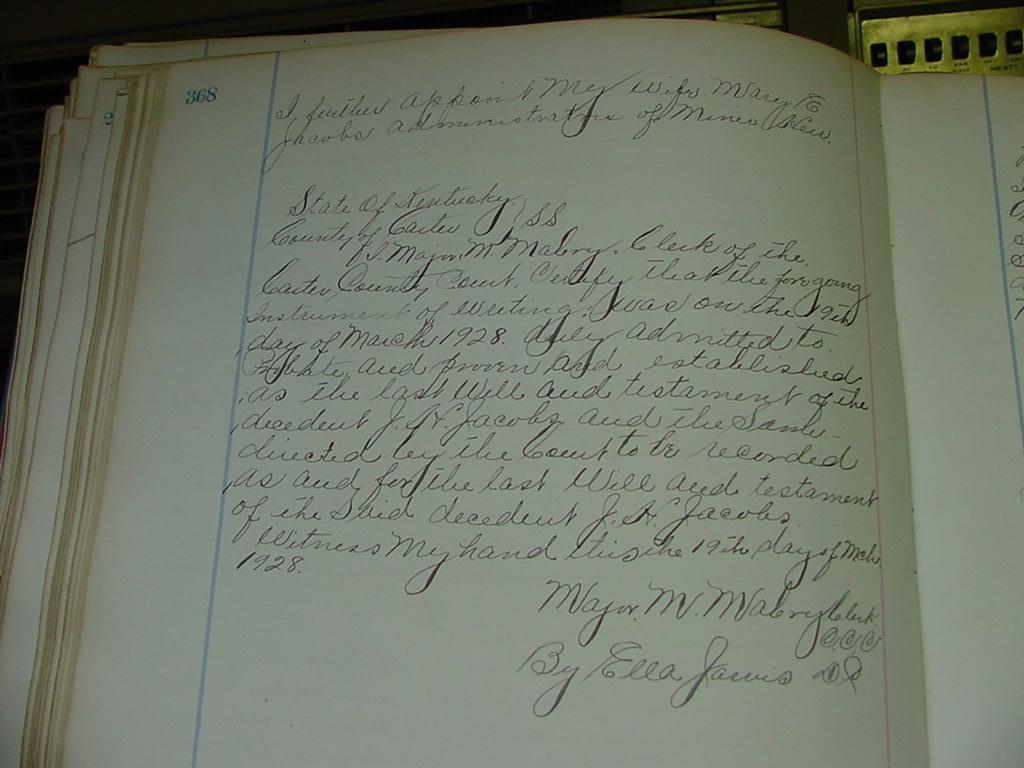 368
I further appoint My wife Mary E
Jacobs administratrix of Minor Heir.
State Of Kentucky
County of Carter } SS
I, Major M. Mabry, Clerk of the
Carter County Court. Certify that the forgoing
Instrument of Writing. was on the 19th
day of March 1928. duly admitted to
Probate, and proven and established
as the last Will and testament of the
decedent J. H. Jacobs and the Same
directed by the Court to be recorded
as and for the last Will and testament
of the Said decedent J. H. Jacobs.
Witness My hand this the 19th day of Mch
1928.
Major. M. Mabry Clerk
C.C.C
By Ella Jarvis DC